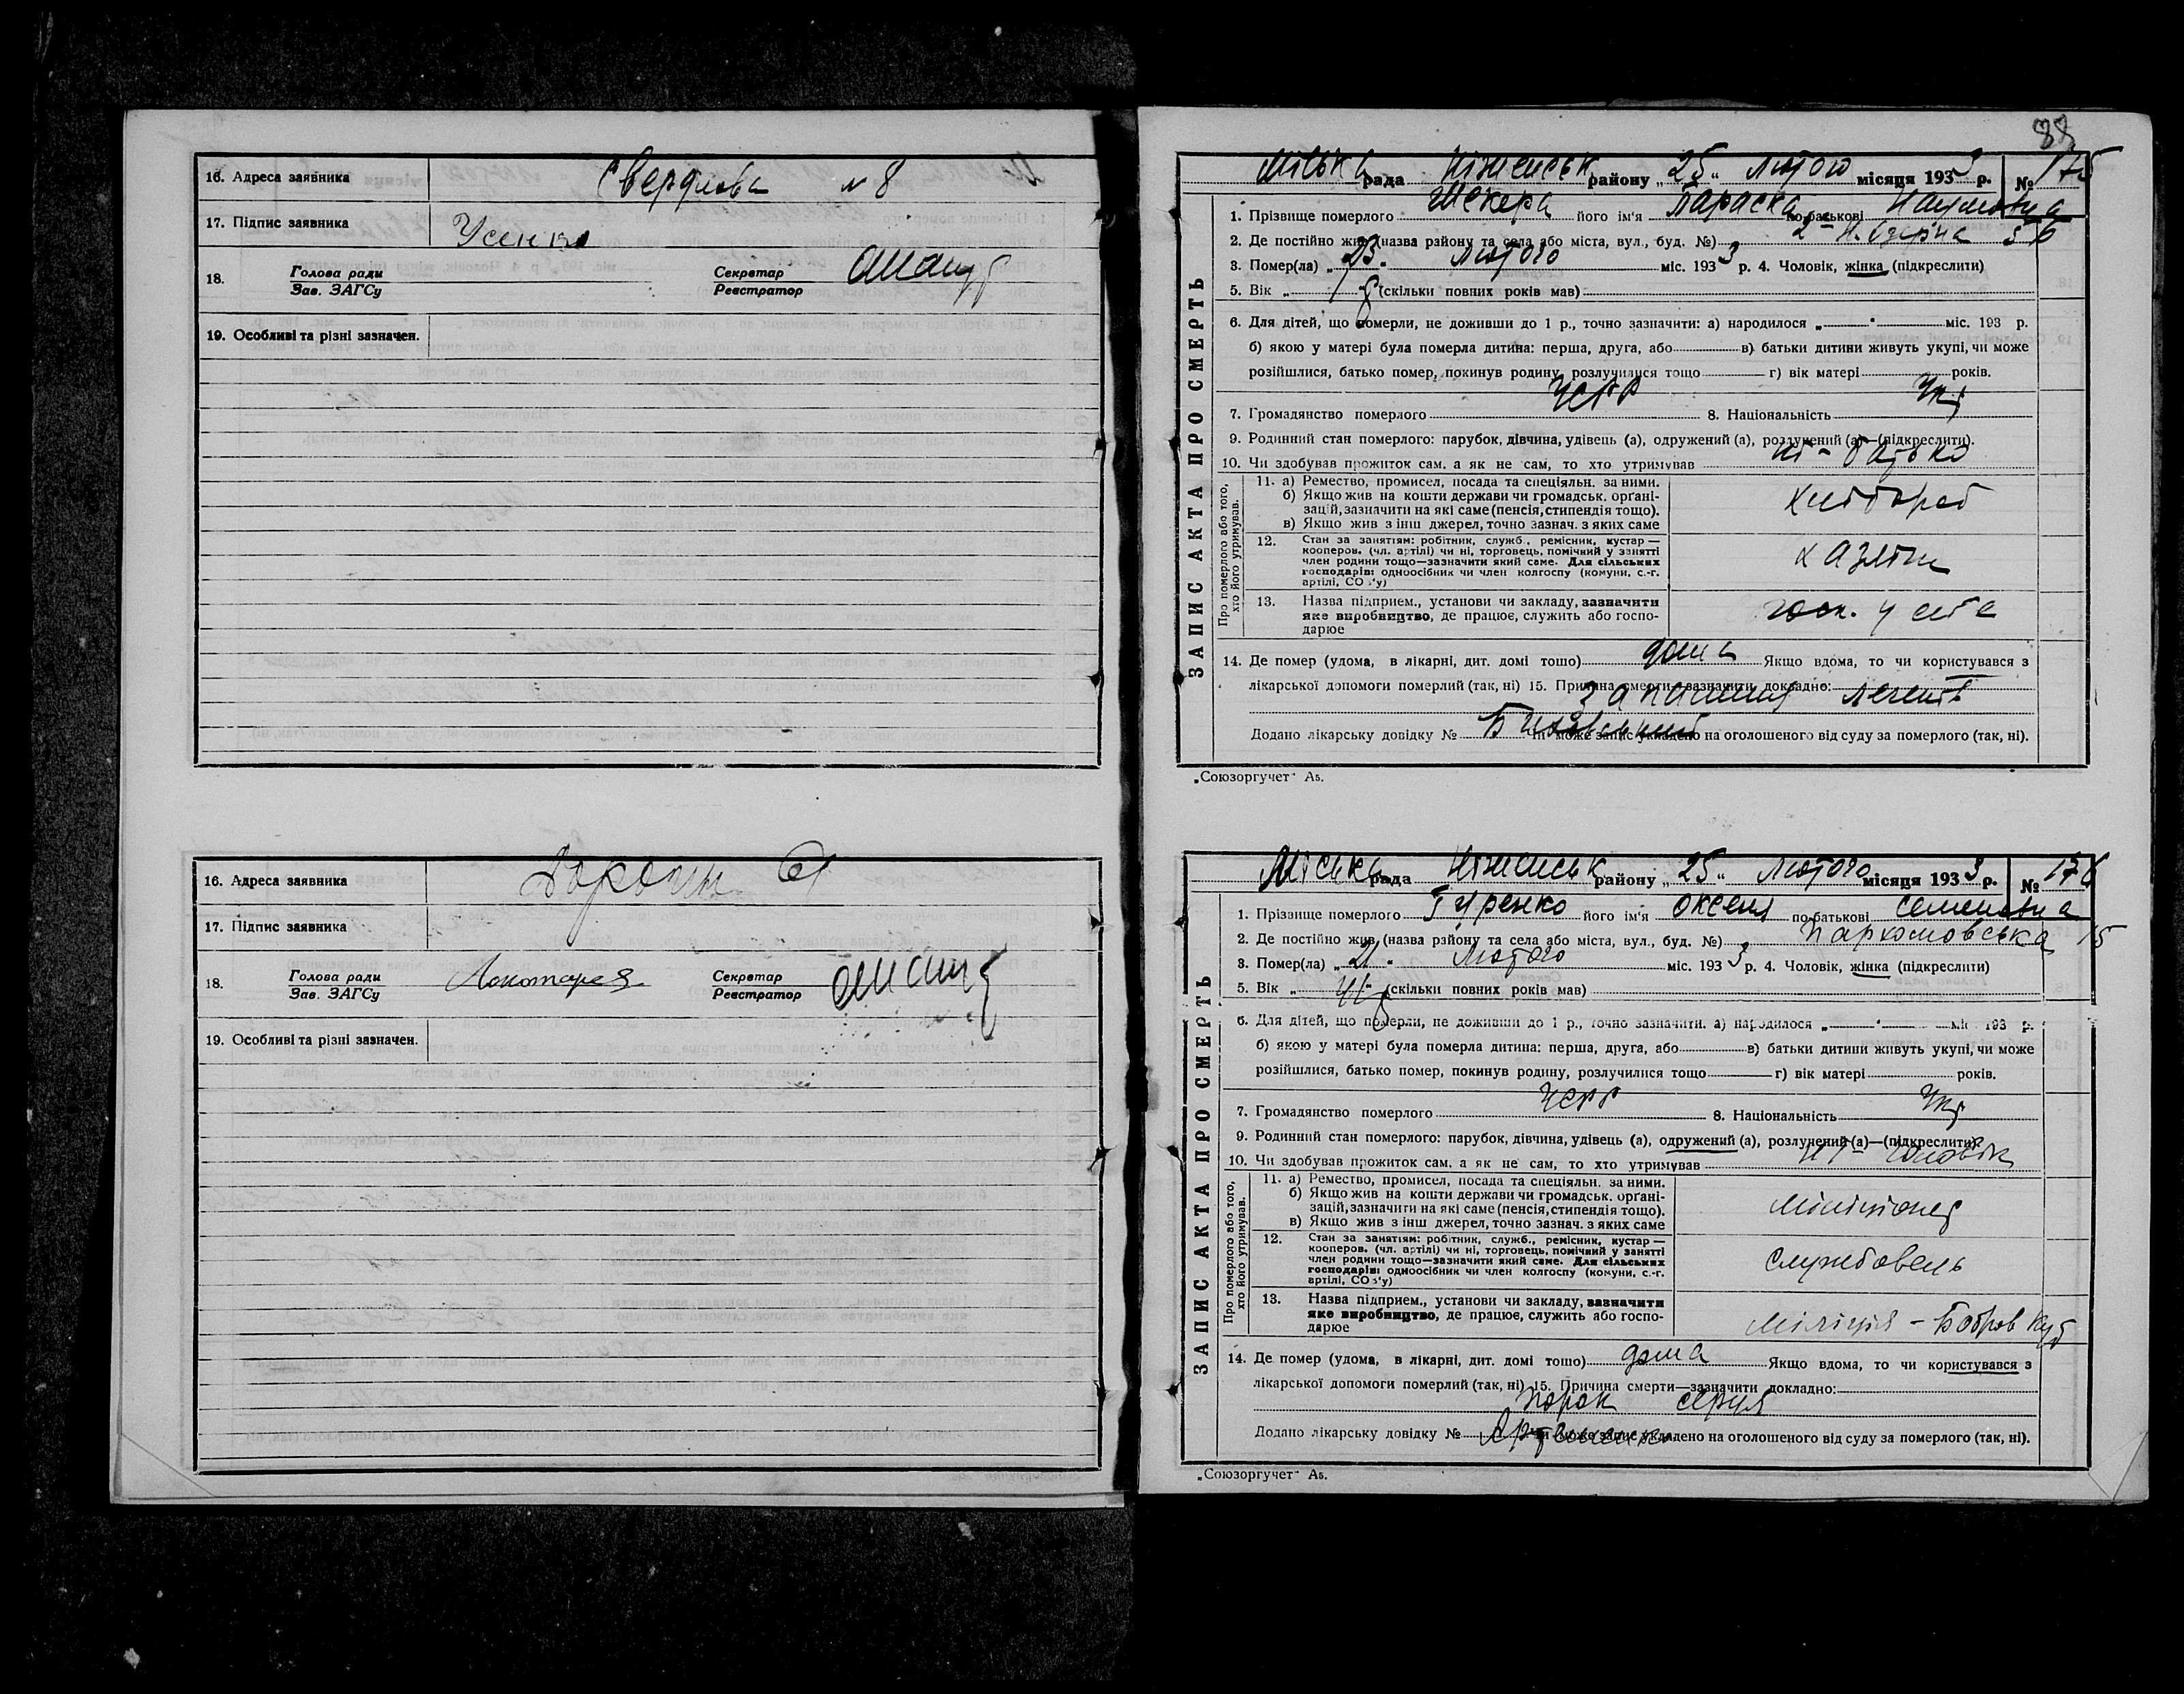 16. Адреса заявника Свердлова № 8
17. Підпис заявника Усенко
18. Голова ради Секретар
Зав. ЗАГСу Реєстратор
19. Особливі та різні зазначен.
16. Адреса заявника
17. Підпис заявника
18. Голова ради Секретар
Зав. ЗАГСу Реєстратор
19. Особливі та різні зазначен.
88
ЗАПИС АКТА ПРО СМЕРТЬ
Міська рада Ніженськ району „25“ лютого місяця 1933 р. № 175
1. Прізвище померлого Шекера його ім'я Параска по батькові Наумовна
2. Де постійно жив (назва району та села або міста, вул., буд. №) 56
3. Помер(ла) „23“ лютого міс. 1933 р. 4. Чоловік, жінка (підкреслити)
5. Вік „ (скільки повних років мав)
6. Для дітей, що померли, не доживши до 1 р., точно зазначити: а) народилося „ “ міс. 193 р.
б) якою у матері була померла дитина: перша, друга, або в) батьки дитини живуть укупі, чи може
розійшлися, батько помер, покинув родину, розлучилися тощо г) вік матері років.
7. Громадянство померлого УСРР 8. Національність Укр
9. Родинний стан померлого: парубок, дівчина, удівець (а), одружений (а), розлучений (а)—(підкреслити).
10. Чи здобував прожиток сам, а як не сам, то хто утримував ні - батько
Про померлого або того, хто його утримував.
11. а) Ремество, промисел, посада та спеціяльн. за ними.
б) Якщо жив на кошти держави чи громадськ. орґані-
зацій, зазначити на які саме (пенсія, стипендія тощо).
в) Якщо жив з інш джерел, точно зазнач. з яких саме
хлібороб
12. Стан за занятіям: робітник, служб., ремісник, кустар —
кооперов. (чл. артілі) чи ні, торговець, помічний у занятті
член родини тощо—зазначити який саме. Для сільських
господарів: одноосібник чи член колгоспу (комуни, с.-г.
артілі, СОЗ'у)
13. Назва підприєм., установи чи закладу, зазначити
яке виробництво, де працює, служить або госпо-
дарює
госп. у себе
14. Де помер (удома, в лікарні, дит. домі тощо) дома Якщо вдома, то чи користувався з
лікарської допомоги померлий (так, ні) 15. Причина смерти—зазначити докладно:
запалення легенів
Додано лікарську довідку № Чи може запис укладено на оголошеного від суду за померлого (так, ні).
„Союзоргучет“ А5.
ЗАПИС АКТА ПРО СМЕРТЬ
Міська рада Ніженськ району „25“ лютого місяця 1933 р. № 176
1. Прізвище померлого Гуренко його ім'я Оксеня по батькові Семеновна
2. Де постійно жив (назва району та села або міста, вул., буд. №) Пархомовська 15
3. Помер(ла) „21“ лютого міс. 1933 р. 4. Чоловік, жінка (підкреслити)
5. Вік „ (скільки повних років мав)
6. Для дітей, що померли, не доживши до 1 р., точно зазначити: а) народилося „ “ міс. 193 р.
б) якою у матері була померла дитина: перша, друга, або в) батьки дитини живуть укупі, чи може
розійшлися, батько помер, покинув родину, розлучилися тощо г) вік матері років.
7. Громадянство померлого УСРР 8. Національність Укр
9. Родинний стан померлого: парубок, дівчина, удівець (а), одружений (а), розлучений (а)—(підкреслити).
10. Чи здобував прожиток сам, а як не сам, то хто утримував ні чоловік
Про померлого або того, хто його утримував.
11. а) Ремество, промисел, посада та спеціяльн. за ними.
б) Якщо жив на кошти держави чи громадськ. орґані-
зацій, зазначити на які саме (пенсія, стипендія тощо).
в) Якщо жив з інш джерел, точно зазнач. з яких саме
міліціонер
12. Стан за занятіям: робітник, служб., ремісник, кустар —
кооперов. (чл. артілі) чи ні, торговець, помічний у занятті
член родини тощо—зазначити який саме. Для сільських
господарів: одноосібник чи член колгоспу (комуни, с.-г.
артілі, СОЗ'у)
службовець
13. Назва підприєм., установи чи закладу, зазначити
яке виробництво, де працює, служить або госпо-
дарює
Міліція -
14. Де помер (удома, в лікарні, дит. домі тощо) дома Якщо вдома, то чи користувався з
лікарської допомоги померлий (так, ні) 15. Причина смерти—зазначити докладно:
Порок серця
Додано лікарську довідку № Чи може запис укладено на оголошеного від суду за померлого (так, ні).
„Союзоргучет“ А5.